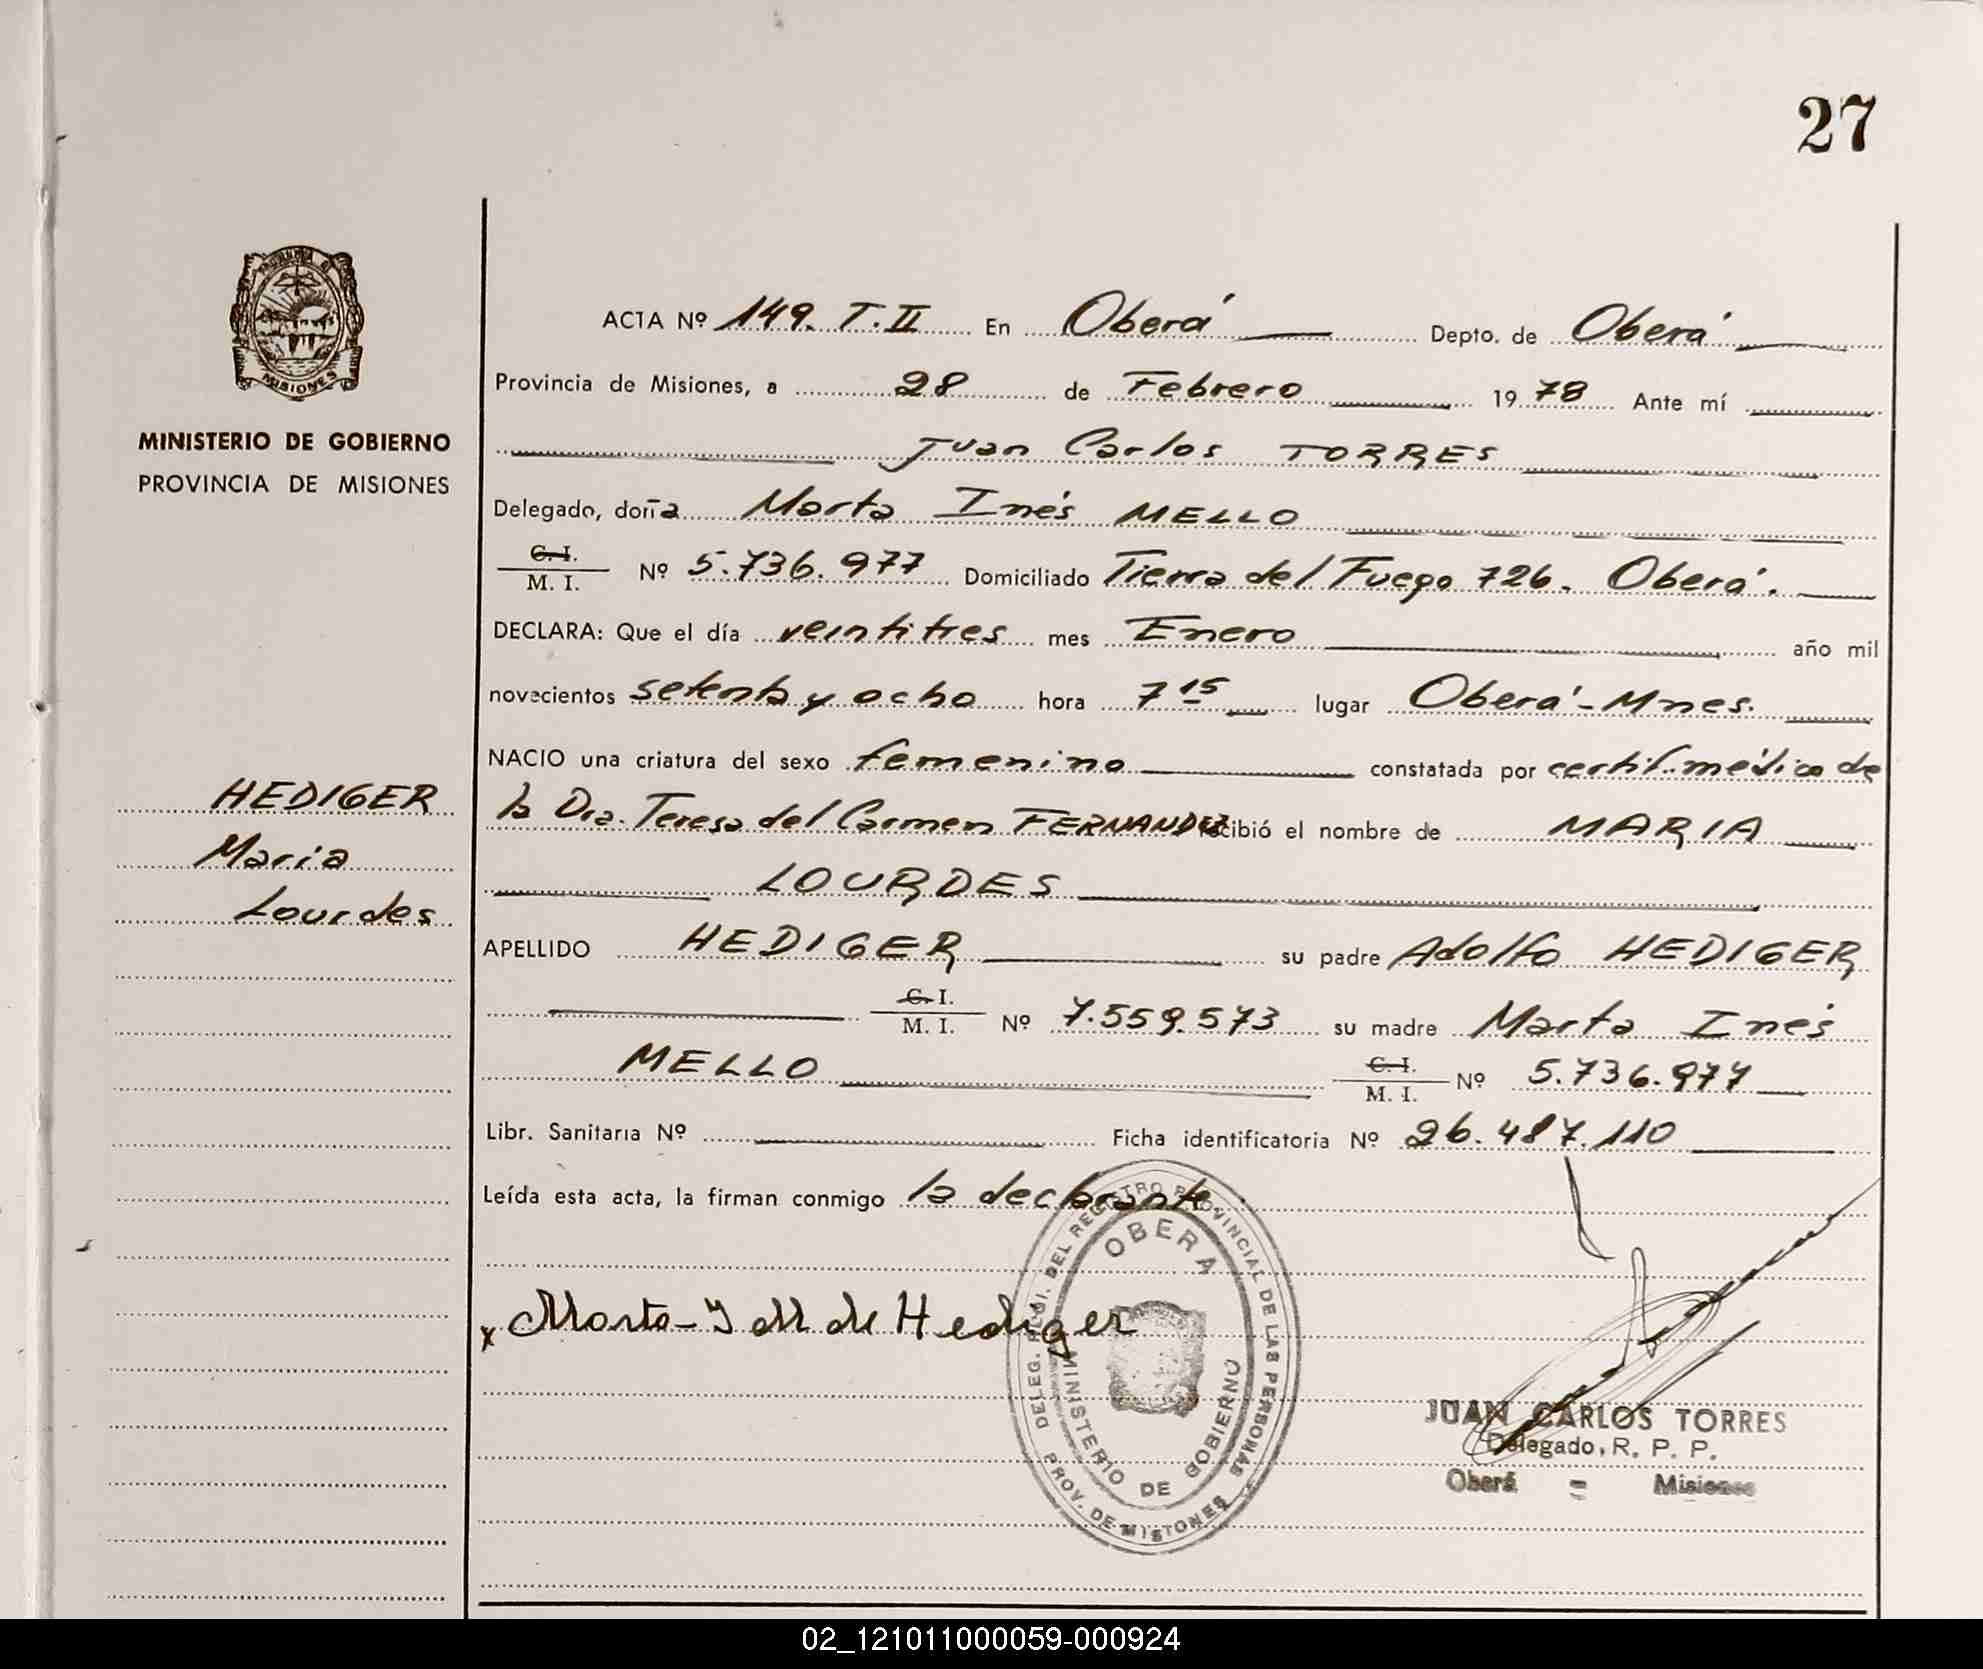 27
MINISTERIO DE GOBIERNO
PROVINCIA DE MISIONES
MISIONES
ACTA Nº 149. T. II En Oberá Depto. de Oberá
Provincia de Misiones, a 28 de Febrero 19 78 Ante mí
Juan Carlos TORRES
Delegado, doña Marta Inés MELLO
C. I.
M. I. Nº 5.736.977 Domiciliado Tierra del Fuego 726. Oberá.
DECLARA: Que el día veintitres mes Enero año mil
novecientos setenta y ocho hora 7 15 lugar Oberá-Mnes.
NACIO una criatura del sexo femenino constatada por certif. médico de
la Dra. Teresa del Carmen FERNANDEZ recibió el nombre de MARIA
LOURDES
APELLIDO HEDIGER su padre Adolfo HEDIGER
C. I.
M. I. Nº 7.559.573 su madre Marta Inés
MELLO C. I.
M. I. Nº 5.736.977
Libr. Sanitaria Nº Ficha identificatoria Nº 26.487.110
Leída esta acta, la firman conmigo la declarante.
HEDIGER
Maria
Lourdes
x Marta I M de Hediger
DEL REGISTRO PROVINCIAL DE LAS PERSONAS
PROV. DE MISIONES
OBERA
MINISTERIO DE GOBIERNO
JUAN CARLOS TORRES
Delegado, R. P. P.
Oberá - Misiones
02_121011000059-000924